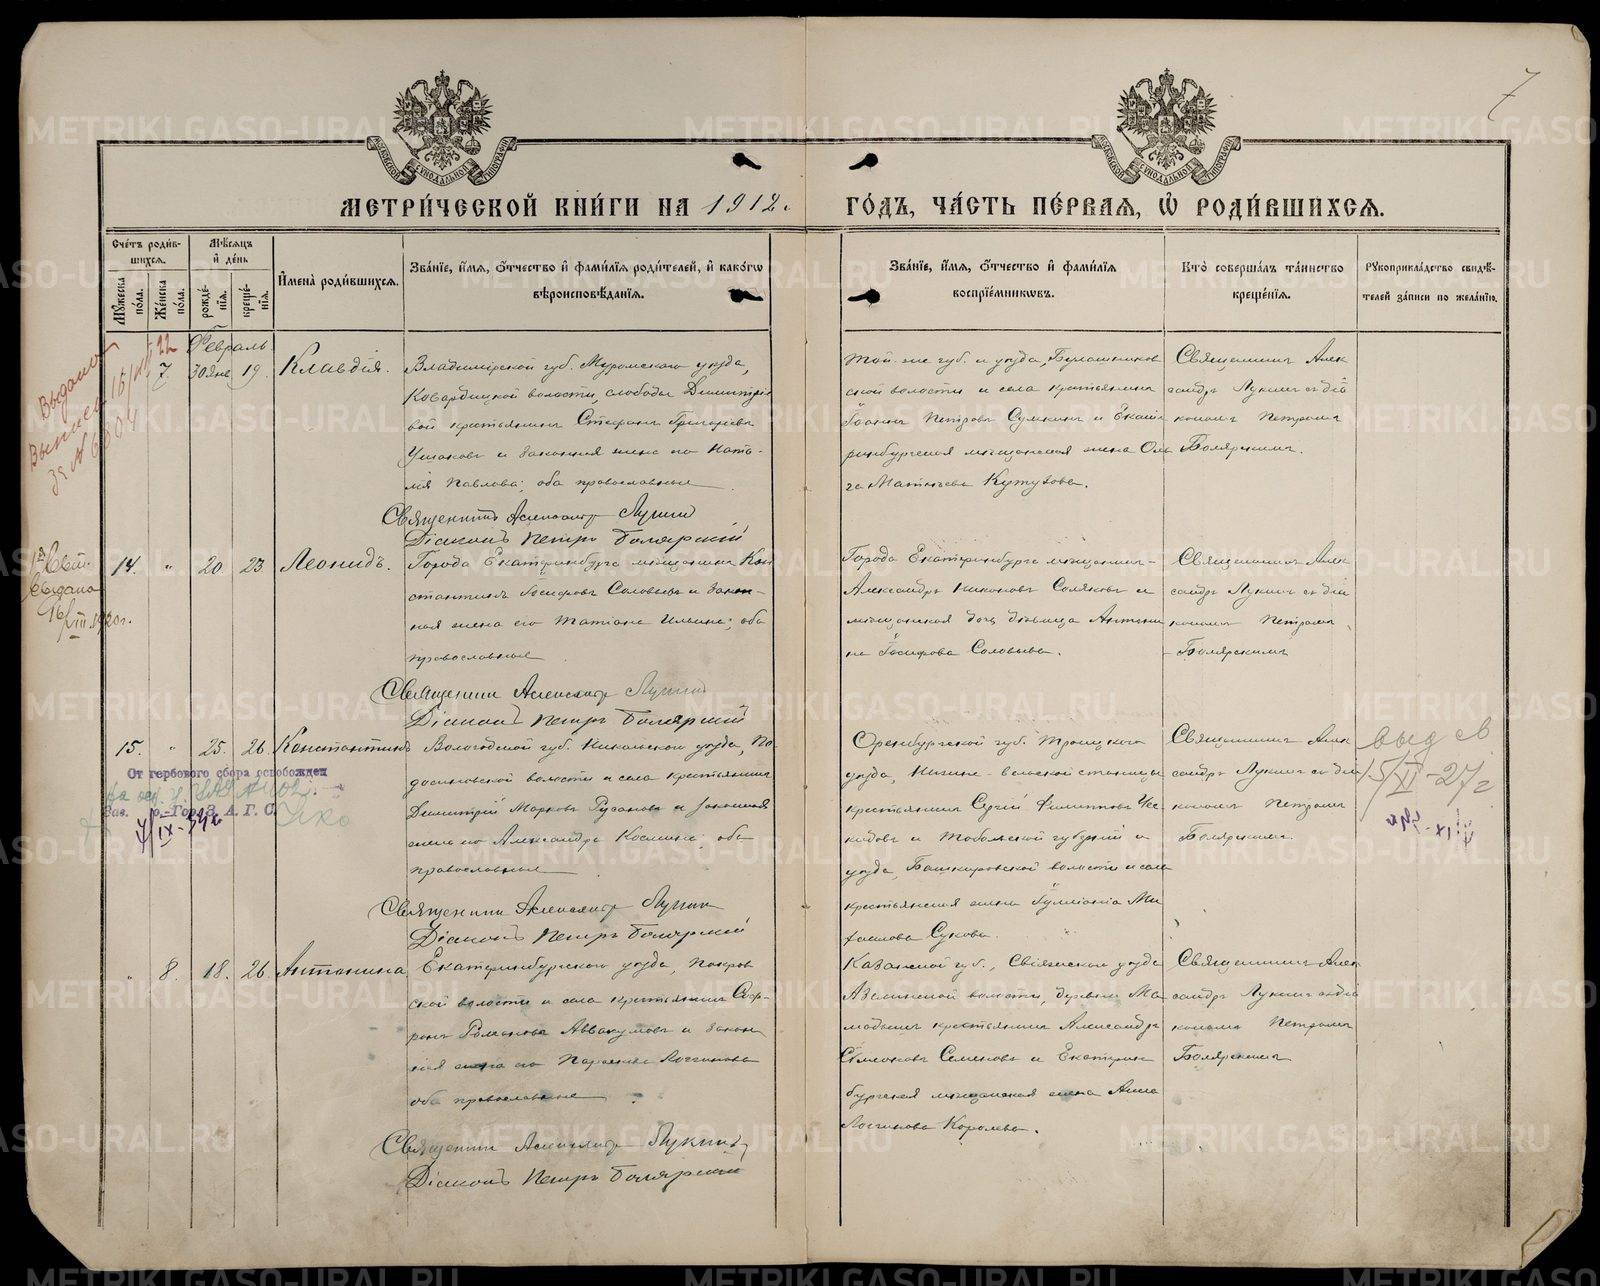 7
МЕТРИ́ЧЕСКОЙ КНИ́ГИ НА 1912. ГО́ДЪ, ЧА́СТЬ ПЕ́РВАЯ, Ѡ РОДИ́ВШИХСЯ.
Сче́тъ роди́в-
шихся.
Му́жеска
по́ла.
Же́нска
по́ла.
Мѣ́сяцъ
и҆ де́нь
рожде́-
нїя.
креще́-
нїя.
И҆мена̀ роди́вшихся.
Зва́нїе, и҆́мя, ѻ҆́тчество и҆ фами́лїя роди́телей, и҆ како́гѡ
вѣроисповѣ́данїя.
Зва́нїе, и҆́мя, ѻ҆́тчество и҆ фами́лїя
воспрїе́мникѡвъ.
Кто̀ соверша́лъ та́инство
креще́нїя.
Рꙋкоприкла́дство свидѣ́-
телей за́писи по жела́нїю.
Февраль.
7. 30 Янв 19. Клавдія.
Владимірской губ. Муромскаго уѣзда,
Ковардицкой волости, слободы Димитріе
вой крестьянинъ Стефанъ Григорьевъ
Ушаковъ и законная жена его Ната-
лія Павлова; оба православные
Священникъ Александръ Лукинъ
Діаконъ Петръ Боярскій
Той-же губ. и уѣзда, Булашников
ской волости и села крестьянинъ
Іоаннъ Петровъ Сумкинъ и Екате
ринбургская мѣщанская жена Оль
га Матвѣева Кутузова.
Священникъ Алек
сандръ Лукинъ съ діа
кономъ Петромъ
Боярскимъ.
Выдана
Выпись 15/VII 22
за № 6804
14. " 20 23. Леонидъ.
Города Екатеринбурга мѣщанинъ Кон
стантинъ Іосифовъ Соловьевъ и закон-
ная жена его Татіана Ильина; оба
православные
Священникъ Александръ Лукинъ
Діаконъ Петръ Боярскій
Города Екатеринбурга мѣщанинъ-
Александръ Никоновъ Соляковъ и
мѣщанская дочь дѣвица Антони
на Іосифова Соловьева.
Священникъ Алек
сандръ Лукинъ съ діа
кономъ Петромъ
Боярскимъ
выдана
16/VIII 1920г.
15. " 25. 26. Константинъ
Вологодской губ. Никольскаго уѣзда, По
досиновской волости и села крестьянинъ
Димитрій Марковъ Русановъ и законная
жена его Александра Космина; оба
православные
Священникъ Александръ Лукинъ
Діаконъ Петръ Боярскій
Оренбургской губ. Троицкаго
уѣзда, Нижне-Увельской станицы
крестьянинъ Сергій Филипповъ Чес
ноковъ и Тобольской губерніи и
уѣзда, Башкировской волости и села
крестьянская жена Іулианія Ми
хаилова Сукова.
Священникъ Алек
сандръ Лукинъ съ діа
кономъ Петромъ
Боярскимъ.
выд св
15/XI-27г
От гербового сбора освобожден
Зав. Гор З. А. Г. С.
" 8. 18. 26. Антонина
Екатеринбургскаго уѣзда, Покров
ской волости и села крестьянинъ Соф-
ронъ Романовъ Аввакумовъ и закон
ная жена его Параскева Логгинова
оба православные
Священникъ Александръ Лукинъ
Діаконъ Петръ Боярскій
Казанской губ., Свіяжскаго уѣзда
Азелинской волости, деревни Ма
молыхъ крестьянинъ Александръ
Симеоновъ Семеновъ и Екатерин
бургская мѣщанская жена Анна
Логгинова Королева.
Священникъ Алек
сандръ Лукинъ съ діа
кономъ Петромъ
Боярскимъ
METRIKI.GASO-URAL.RU